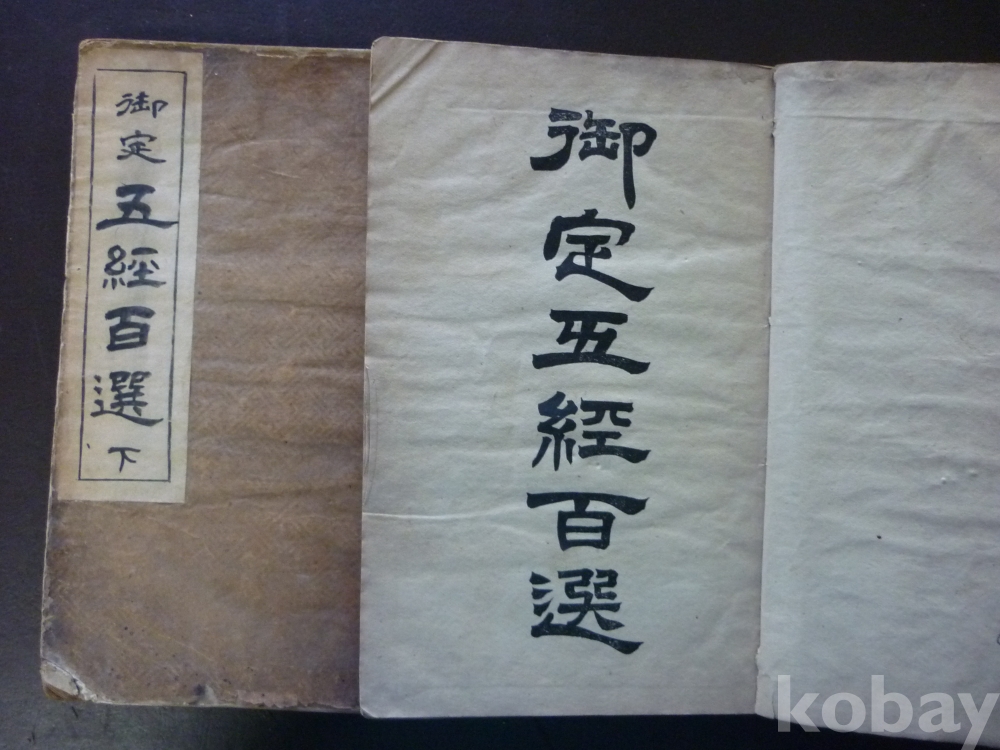 御定五經百選下
御定五經百選
kobay